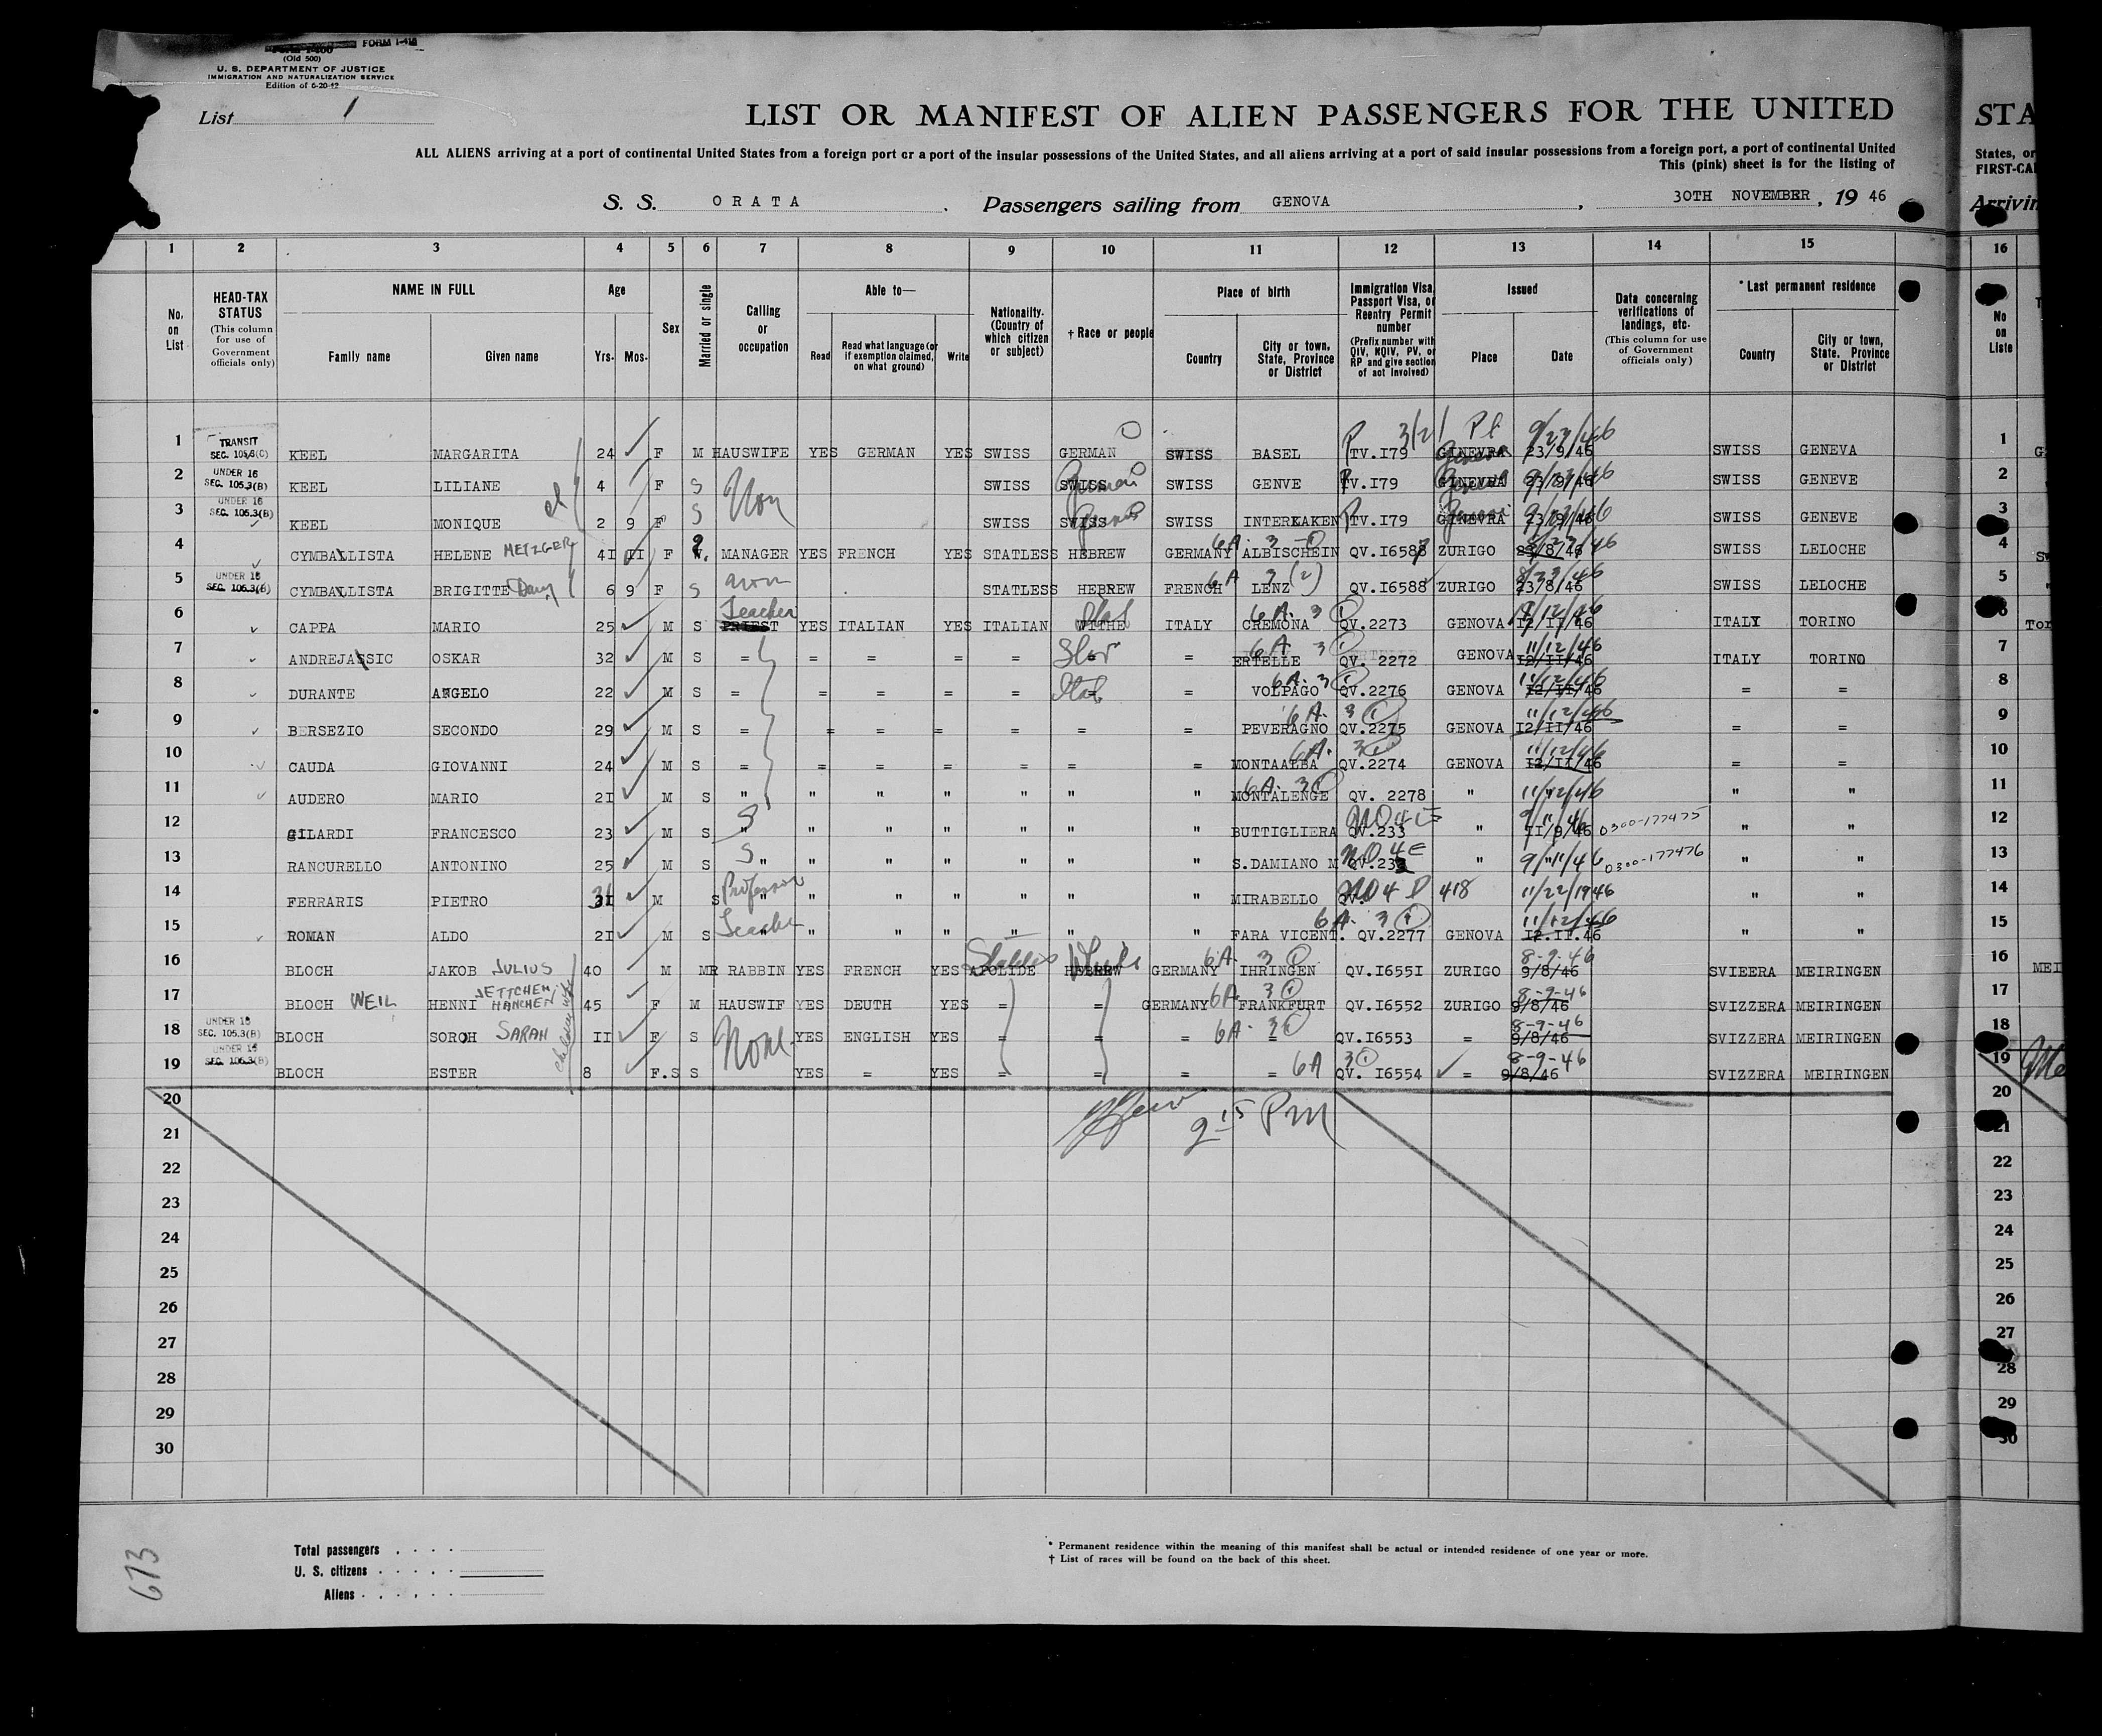 FORM I-418
(Old 500)
U. S. DEPARTMENT OF JUSTICE
IMMIGRATION AND NATURALIZATION SERVICE
Edition of 6-20-42
List 1
LIST OR MANIFEST OF ALIEN PASSENGERS FOR THE UNITED STA
ALL ALIENS arriving at a port of continental United States from a foreign port or a port of the insular possessions of the United States, and all aliens arriving at a port of said insular possessions from a foreign port, a port of continental United States, or
This (pink) sheet is for the listing of FIRST-CA
S. S. ORATA. Passengers sailing from GENOVA, 30TH NOVEMBER, 19 46 Arrivin
1 2 3 4 5 6 7 8 9 10 11 12 13 14 15 16
No. on List
HEAD-TAX STATUS (This column for use of Government officials only)
NAME IN FULL Family name Given name
Age Yrs. Mos.
Sex
Married or single
Calling or occupation
Able to— Read Read what language (or if exemption claimed, on what ground) Write
Nationality. (Country of which citizen or subject)
† Race or people
Place of birth Country City or town, State, Province or District
Immigration Visa, Passport Visa, or Reentry Permit number (Prefix number with QIV, NQIV, PV, or RP and give section of act involved)
Issued Place Date
Data concerning verifications of landings, etc. (This column for use of Government officials only)
* Last permanent residence Country City or town, State, Province or District
No on Liste
1 TRANSIT SEC. 105.3(C) KEEL MARGARITA 24 F M HAUSWIFE YES GERMAN YES SWISS GERMAN SWISS BASEL TV.I79 3/2/ GINEVRA 23/9/46 9/23/46 SWISS GENEVA 1
2 UNDER 16 SEC. 105.3(B) KEEL LILIANE 4 F S Non SWISS SWISS German SWISS GENVE TV.I79 GINEVRA Geneva 23/9/46 9/23/46 SWISS GENEVE 2
3 UNDER 16 SEC. 105.3(B) KEEL MONIQUE 2 9 F S SWISS SWISS German SWISS INTERKAKEN TV.I79 GINEVRA 23/9/46 9/23/46 SWISS GENEVE 3
4 CYMBALLISTA HELENE METZGER 4I II F W. MANAGER YES FRENCH YES STATLESS HEBREW GERMANY ALBISCHEIN 6A. 3 QV.I6587 ZURIGO 23/8/46 8/23/46 SWISS LELOCHE 4
5 UNDER 16 SEC. 105.3(B) CYMBALLISTA BRIGITTE Dany 6 9 F S non STATLESS HEBREW FRENCH LENZ 6A 3 (2) QV.I6588 ZURIGO 23/8/46 8/23/46 SWISS LELOCHE 5
6 CAPPA MARIO 25 M S PRIEST Teacher YES ITALIAN YES ITALIAN WITHE Ital ITALY CREMONA 6A. 3 (1) QV.2273 GENOVA I2/II/46 11/12/46 ITALY TORINO 6
7 ANDREJASSIC OSKAR 32 M S = = = = = Slov = ERTELLE 6A. 3 (1) QV. 2272 GENOVA I2/II/46 11/12/46 ITALY TORINO 7
8 DURANTE ANGELO 22 M S = = = = = Ital = VOLPAGO 6A. 3 (1) QV.2276 GENOVA I2/II/46 11/12/46 = = 8
9 BERSEZIO SECONDO 29 M S = = = = = = = PEVERAGNO 6A. 3 (1) QV.2275 GENOVA I2/II/46 11/12/46 = = 9
10 CAUDA GIOVANNI 24 M S = = = = = = = MONTAALBA 6A. 3 (1) QV.2274 GENOVA I2/II/46 11/12/46 = = 10
11 AUDERO MARIO 2I M S " " " " " " " MONTALENGE 6A. 3 (1) QV. 2278 " 11/12/46 " " 11
12 GILARDI FRANCESCO 23 M S S " " " " " " " BUTTIGLIERA QV.233 NO 4 E " II/9/46 9/11/46 0300-177475 " " 12
13 RANCURELLO ANTONINO 25 M S S " " " " " " " S.DAMIANO M QV.232 NO 4 E " 9/11/46 0300-177476 " " 13
14 FERRARIS PIETRO 31 M S Professor " " " " " " " MIRABELLO QV. NO 4 D 418 11/22/1946 " " 14
15 ROMAN ALDO 2I M S Teacher " " " " " " " FARA VICENT. 6A. 3 (1) QV.2277 GENOVA I2.II.46 11/12/46 " " 15
16 BLOCH JAKOB JULIUS 40 M MR RABBIN YES FRENCH YES APOLIDE Stateless HEBREW GERMANY IHRINGEN 6A. 3 (1) QV.I655I ZURIGO 9/8/46 8-9-46 SVIEERA MEIRINGEN 16 MEI
17 BLOCH WEIL HENNI JETTCHEN HANCHEN 45 F M HAUSWIF YES DEUTH YES = = GERMANY FRANKFURT 6A 3 (1) QV.I6552 ZURIGO 9/8/46 8-9-46 SVIZZERA MEIRINGEN 17
18 UNDER 16 SEC. 105.3(B) BLOCH SOROH SARAH II F S None YES ENGLISH YES = = = = 6A. 3 (1) QV.I6553 = 9/8/46 8-9-46 SVIZZERA MEIRINGEN 18
19 UNDER 16 SEC. 105.3(B) BLOCH ESTER 8 F.S S YES = YES = = = = 6A 3 (1) QV. I6554 = 9/8/46 8-9-46 SVIZZERA MEIRINGEN 19
20 2 15 PM 20
21 21
22 22
23 23
24 24
25 25
26 26
27 27
28 28
29 29
30 30
Total passengers
U. S. citizens
Aliens
* Permanent residence within the meaning of this manifest shall be actual or intended residence of one year or more.
† List of races will be found on the back of this sheet.
673